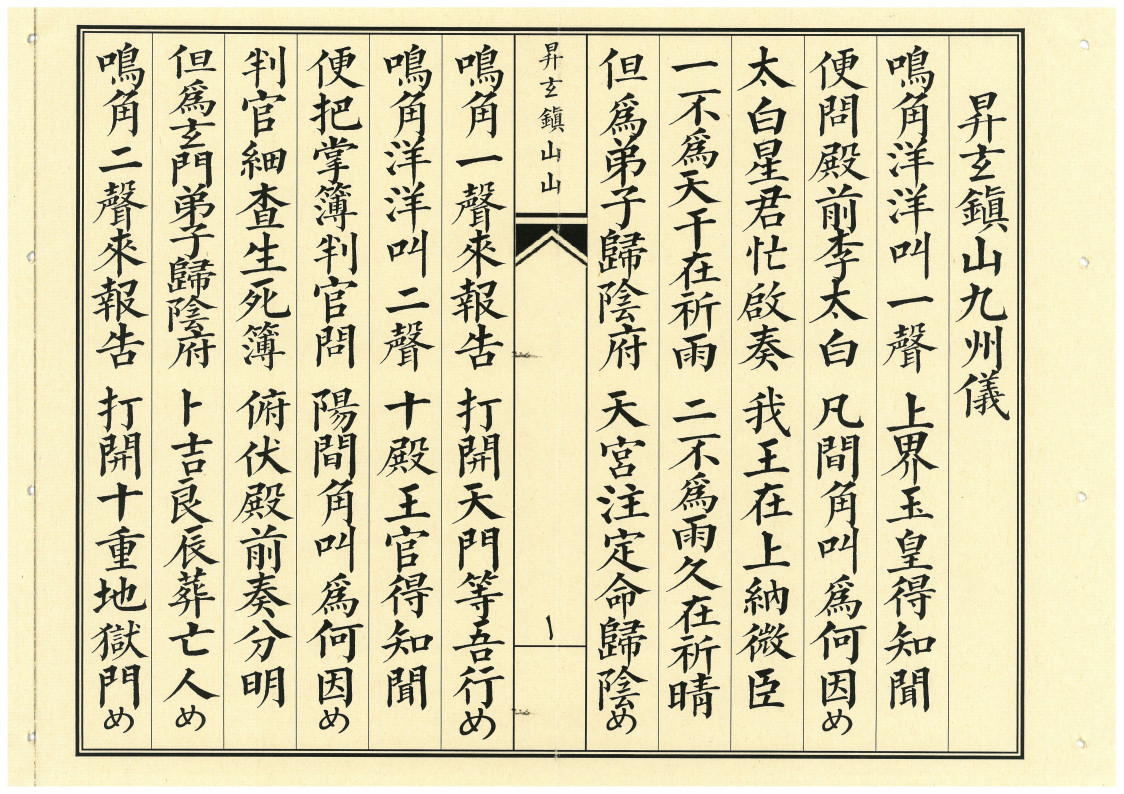 昇玄鎮山九州儀
鳴角洋洋叫一聲 上界玉皇得知聞
便問殿前李太白 凡間角叫爲何因め
太白星君忙啟奏 我王在上納微臣
一不爲天干在祈雨 二不爲雨久在祈晴
但爲弟子歸陰府 天宮注定命歸陰め
昇玄鎮山山
一
鳴角一聲來報告 打開天門等吾行め
鳴角洋洋叫二聲 十殿王官得知聞
便把掌簿判官問 陽間角叫爲何因め
判官細查生死簿 俯伏殿前奏分明
但爲玄門弟子歸陰府 卜吉良辰葬亡人め
鳴角二聲來報告 打開十重地獄門め